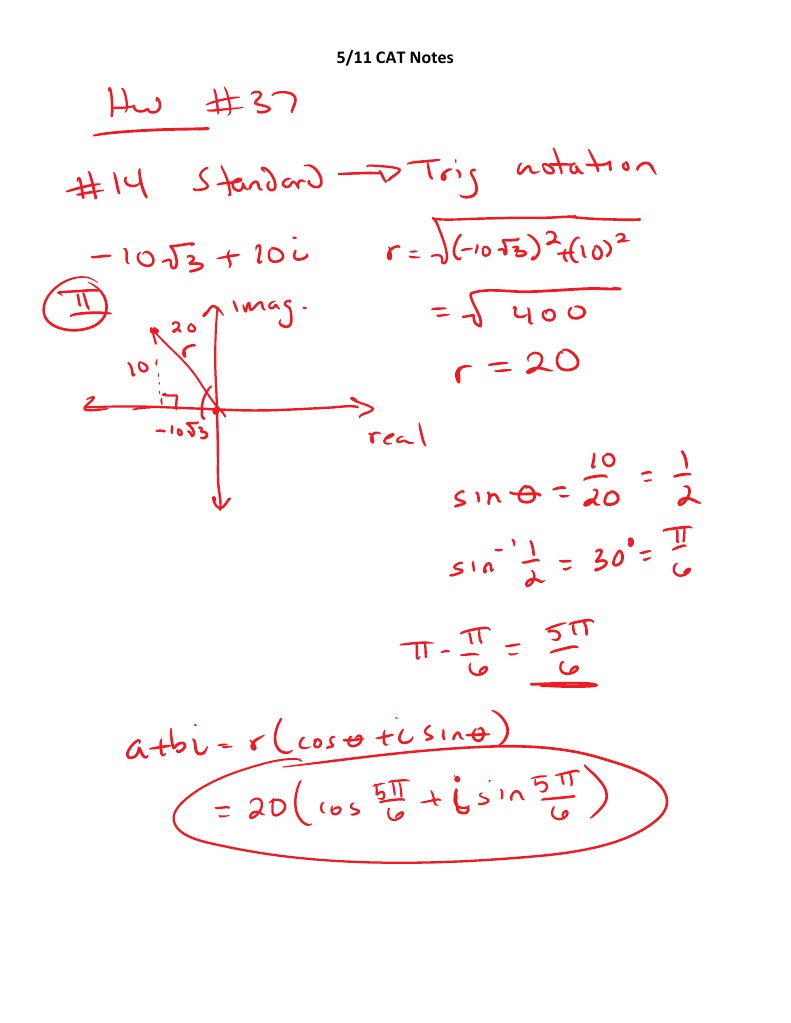 5/11 CAT Notes
Hw #37
#14 Standard → Trig notation
-10√3 + 10i
r = √(-10√3)² + (10)²
II
= √400
r = 20
imag.
20
r
10
-10√3
real
sin θ = 10/20 = 1/2
sin⁻¹ 1/2 = 30° = π/6
π - π/6 = 5π/6
a+bi = r(cosθ + i sinθ)
= 20(cos 5π/6 + i sin 5π/6)